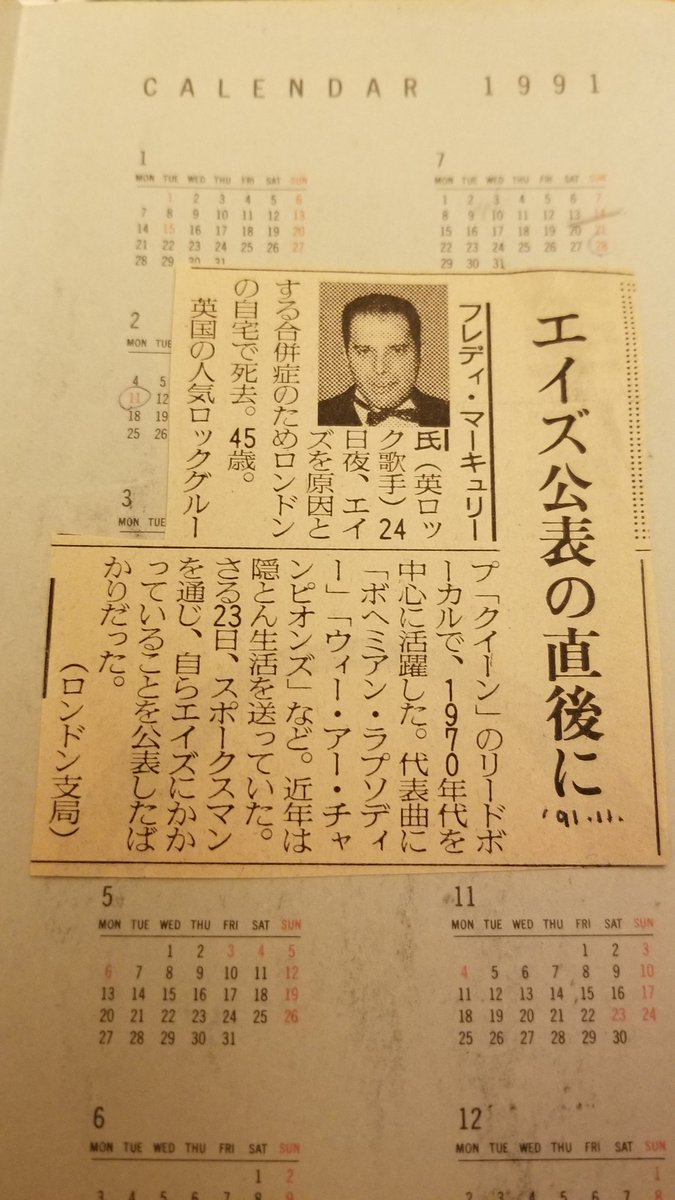 CALENDAR 1991
1
MON TUE WED THU FRI SAT SUN
1 2 3 4 5 6
7 8 9 10 11 12 13
14 15 16 17 18 19 20
21 22 23 24 25 26 27
28 29 30 31
7
MON TUE WED THU FRI SAT SUN
1 2 3 4 5 6 7
8 9 10 11 12 13 14
15 16 17 18 19 20 21
22 23 24 25 26 27 28
29 30 31
2
MON TUE
4 5
11 12
18 19
25 26
3
MON TUE
エイズ公表の直後に
'91.11.
フレディ・マーキュリー
氏(英ロッ
ク歌手)24
日夜、エイ
ズを原因と
する合併症のためロンドン
の自宅で死去。45歳。
英国の人気ロックグルー
プ「クイーン」のリードボ
ーカルで、1970年代を
中心に活躍した。代表曲に
「ボヘミアン・ラプソディ
ー」「ウィー・アー・チャ
ンピオンズ」など。近年は
隠とん生活を送っていた。
さる23日、スポークスマン
を通じ、自らエイズにかか
っていることを公表したば
かりだった。
(ロンドン支局)
5
MON TUE WED THU FRI SAT SUN
1 2 3 4 5
6 7 8 9 10 11 12
13 14 15 16 17 18 19
20 21 22 23 24 25 26
27 28 29 30 31
11
MON TUE WED THU FRI SAT SUN
1 2 3
4 5 6 7 8 9 10
11 12 13 14 15 16 17
18 19 20 21 22 23 24
25 26 27 28 29 30
6
MON TUE WED THU FRI SAT SUN
1 2
3 4 5 6 7 8 9
12
MON TUE WED THU FRI SAT SUN
1
2 3 4 5 6 7 8